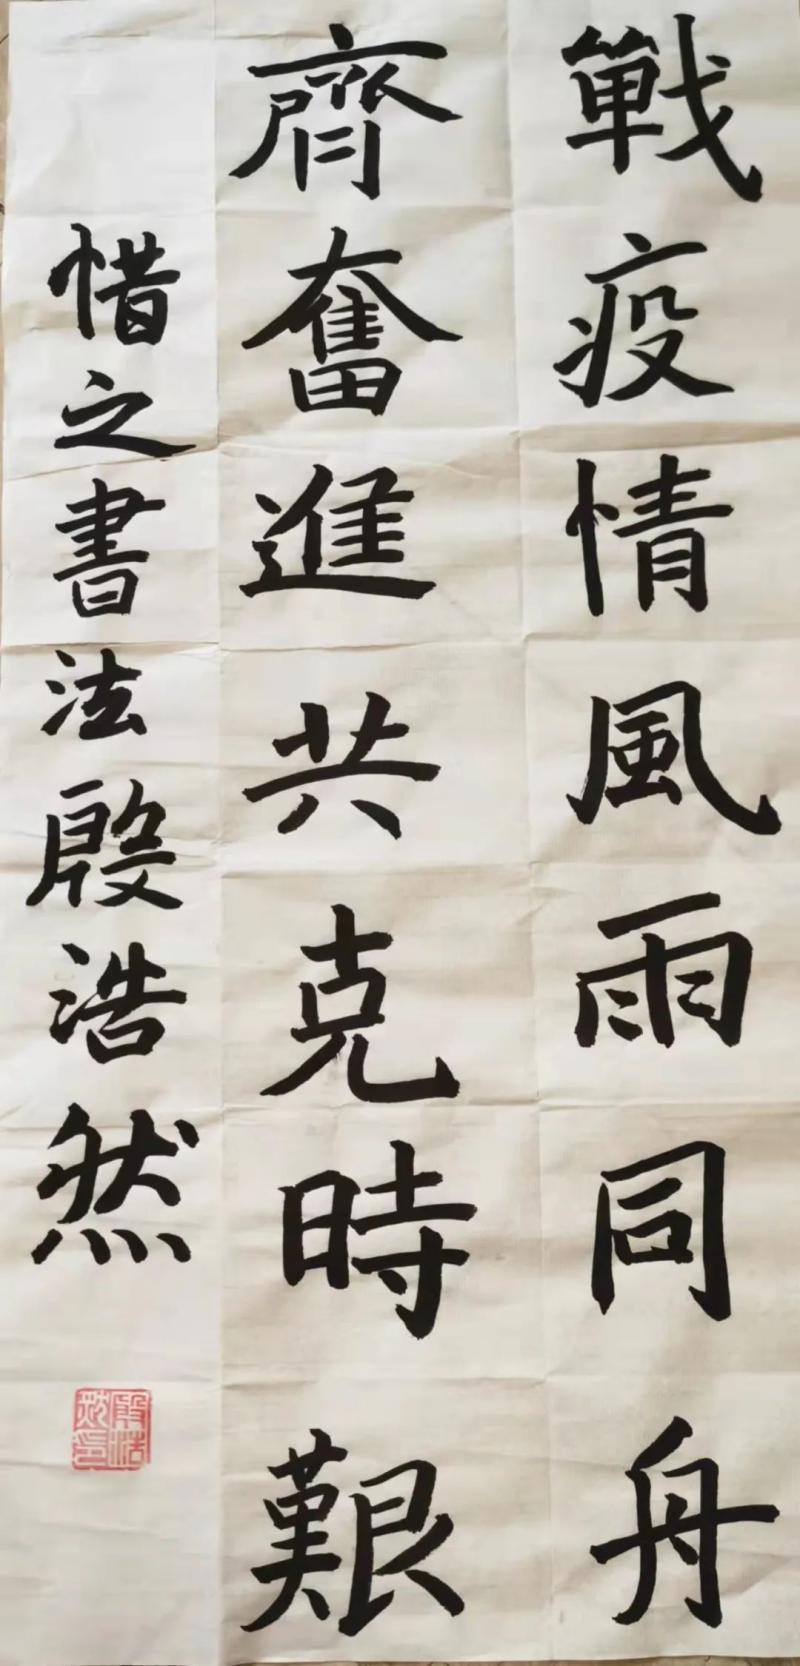 戰疫情風雨同舟
齊奮進共克時艱
惜之書法殷浩然
殷浩然印